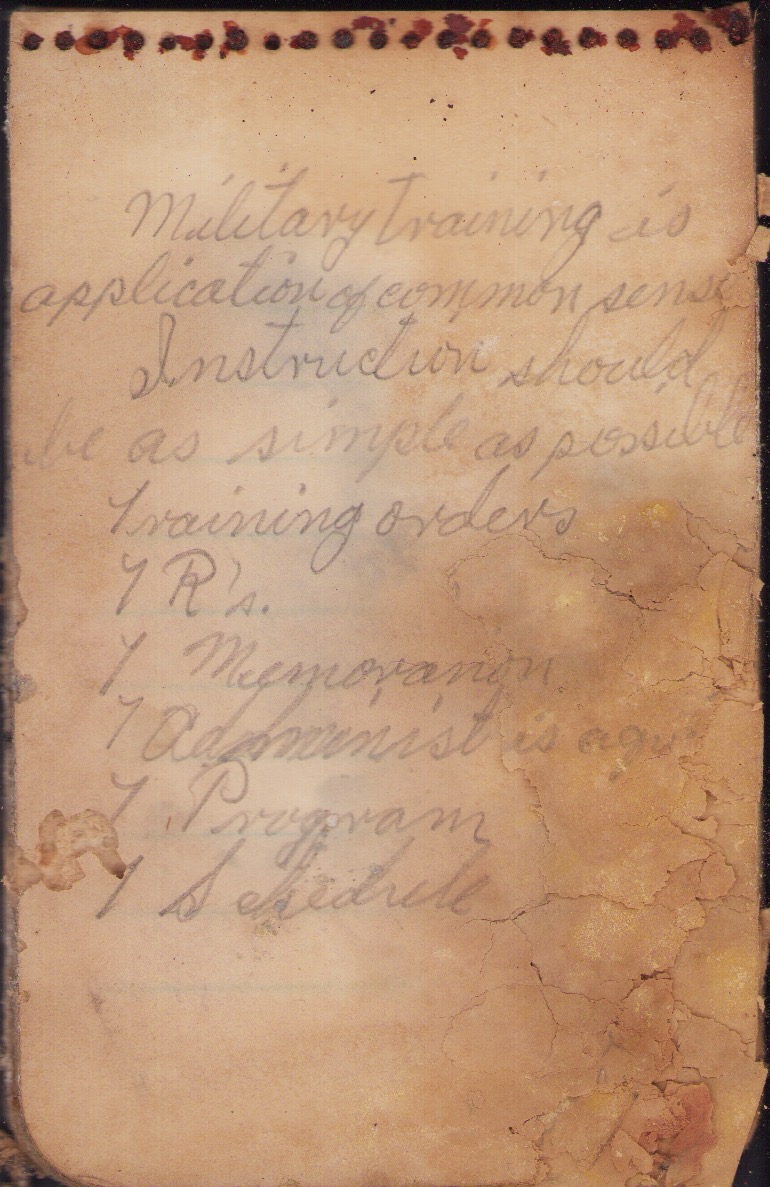 Military training is
application of common sense
Instruction should
be as simple as possible
Training orders
T R's.
T Memoranon
T
T Program
T Schedule